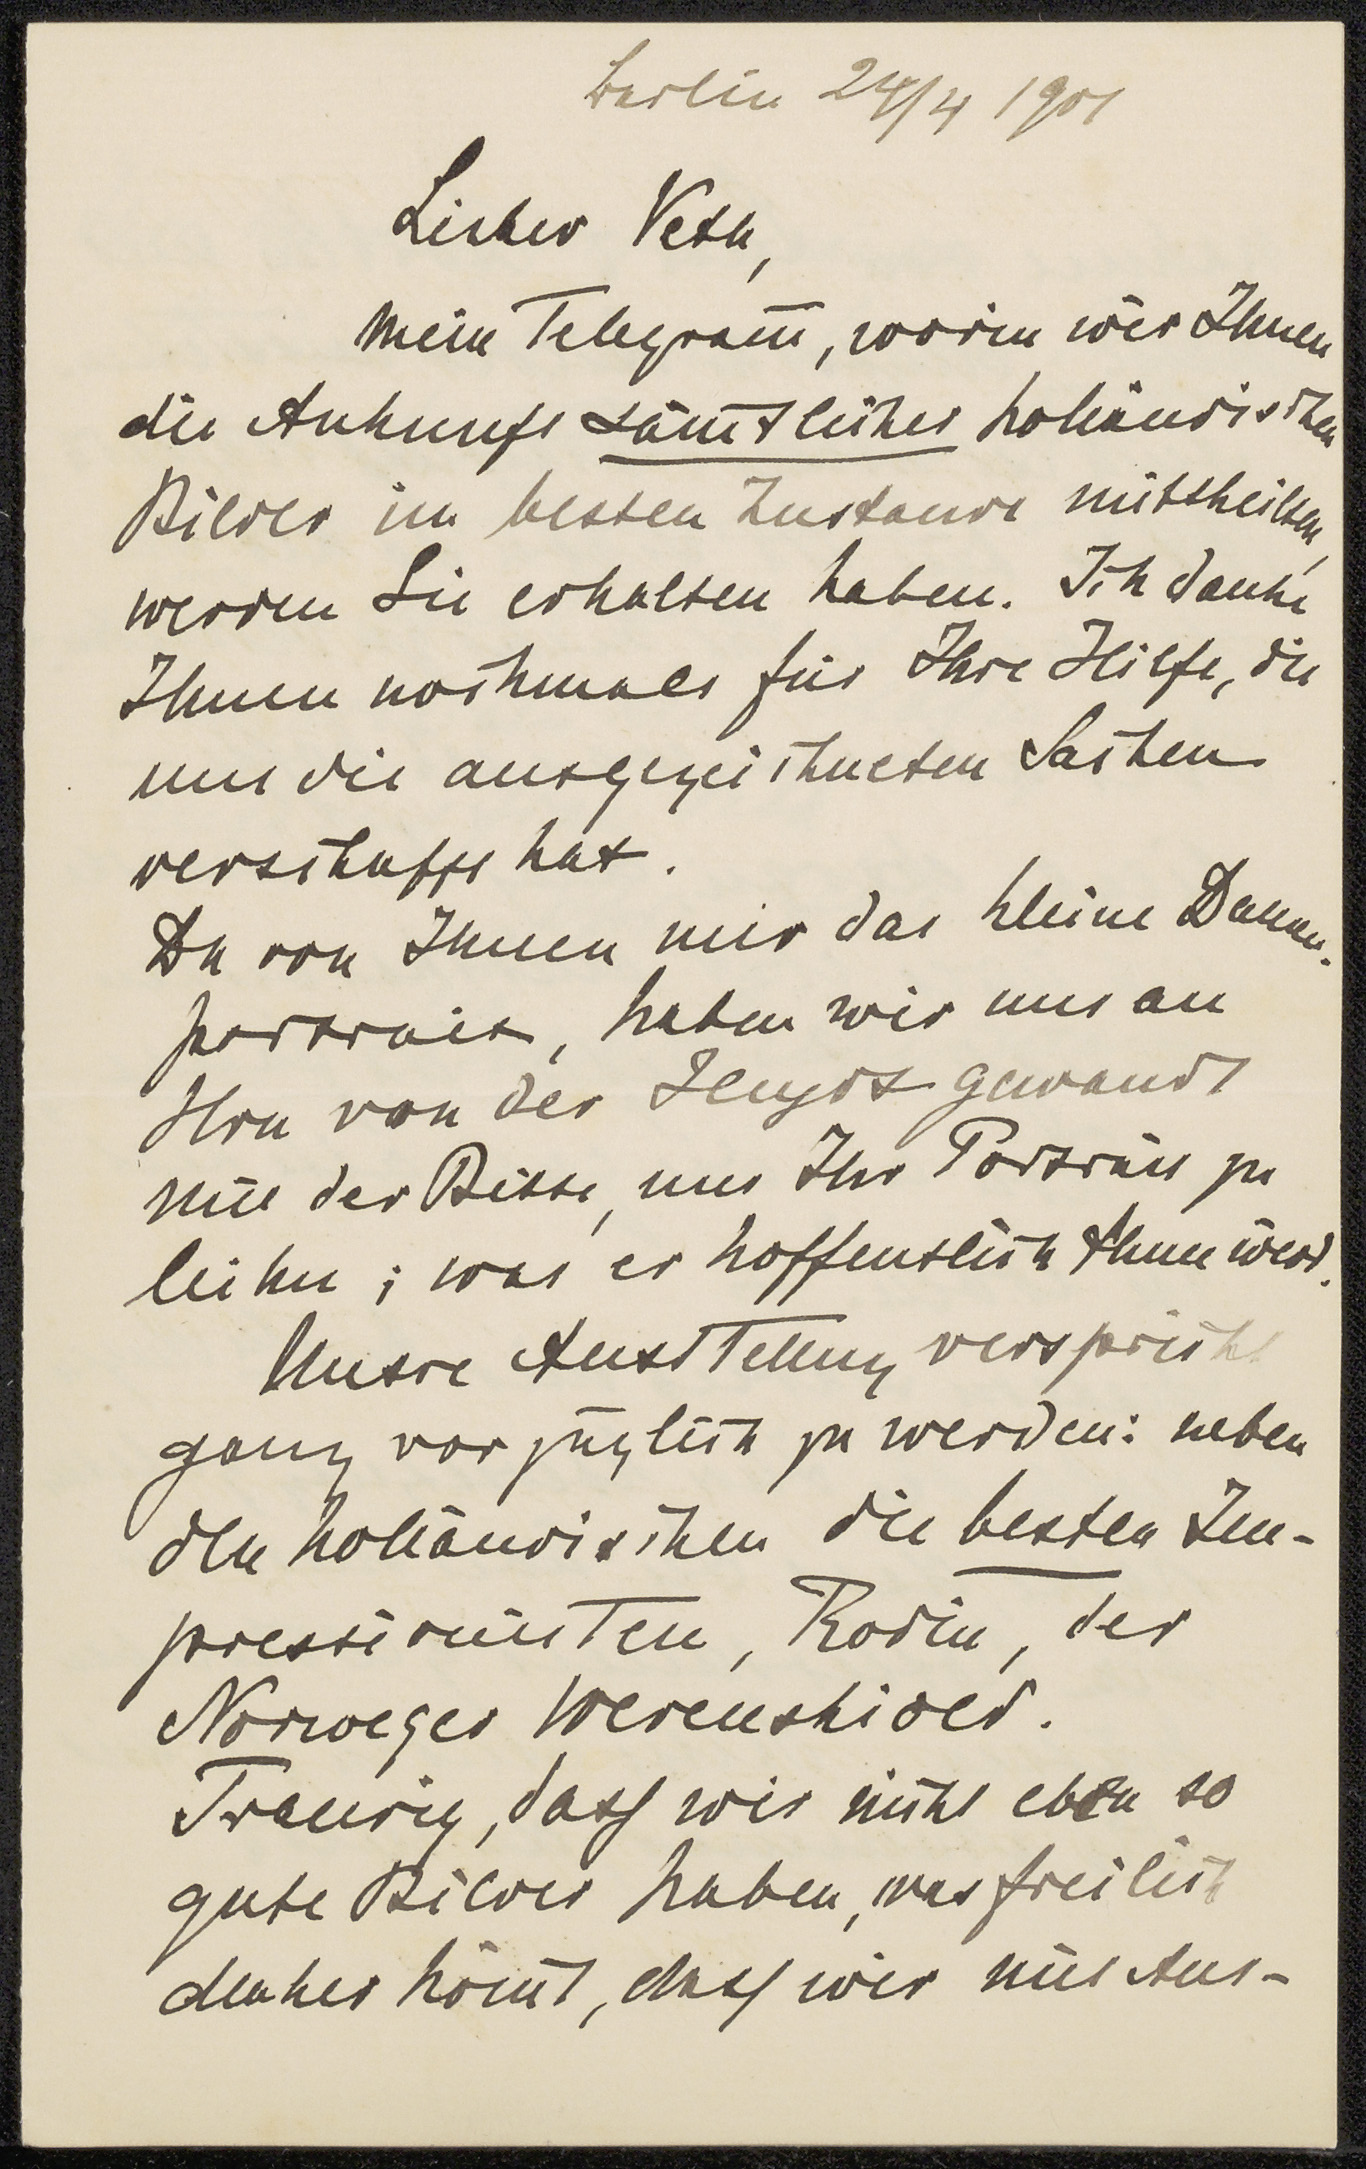 Berlin 24/4 1901
Lieber Veth,
Mein Telegram̄, worin wir Ihnen
die Ankunft säm̄tlicher holländischen
Bilder im besten Zustande mittheilten,
werden Sie erhalten haben. Ich danke
Ihnen nochmals für Ihre Hilfe, die
uns die ausgezeichneten Sachen
verschafft hat.
Da von Ihnen nur das kleine Damen-
portrait, haben wir uns an
Hrn van der gewandt
mit der Bitte, uns Ihr Porträt zu
leihn; was er hoffentlich thun wird.
Unsre Ausstellung verspricht
ganz vorzüglich zu werden: neben
den holländischen die besten Im-
pressionisten, Rodin, der
Norweger Werenskiold.
Traurig, dass wir nicht eben so
gute Bilder haben, was freilich
daher kom̄t, dass wir mit Aus-